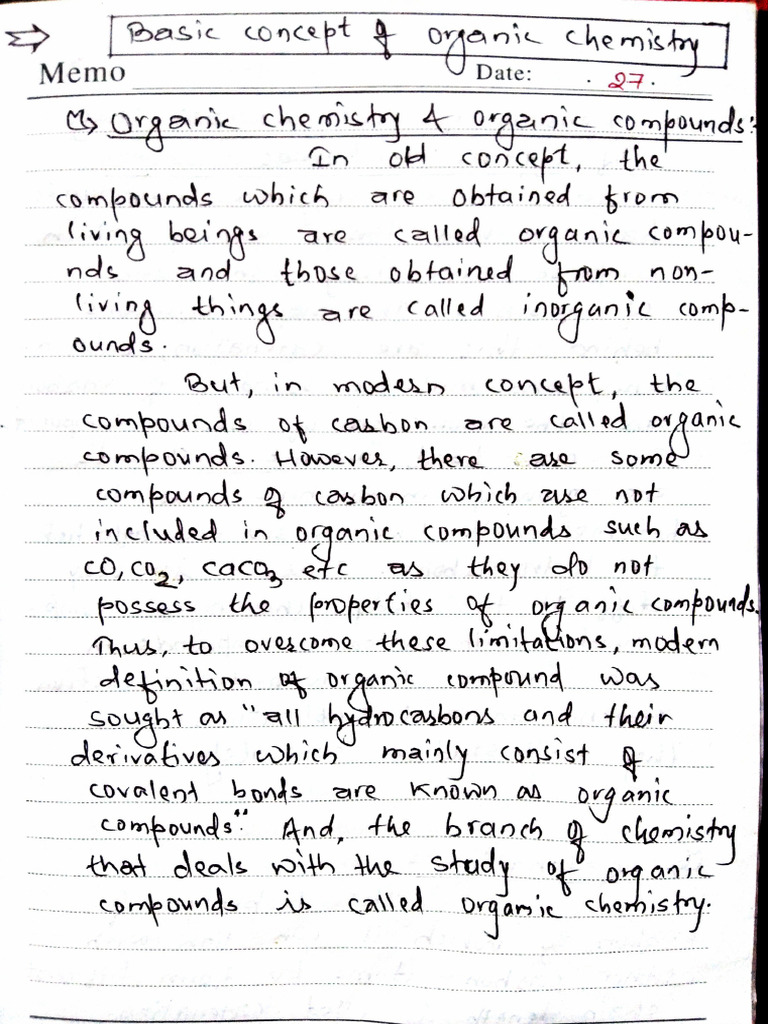 ⇒ Basic concept of organic chemistry
Memo Date: . 27.
Organic chemistry & organic compounds:
In old concept, the
compounds which are obtained from
living beings are called organic compou-
nds and those obtained from non-
living things are called inorganic comp-
ounds.
But, in modern concept, the
compounds of carbon are called organic
compounds. However, there are some
compounds of carbon which are not
included in organic compounds such as
CO, CO2, CaCO3 etc as they do not
possess the properties of organic compounds.
Thus, to overcome these limitations, modern
definition of organic compound was
sought as "all hydrocarbons and their
derivatives which mainly consist of
covalent bonds are known as organic
compounds". And, the branch of chemistry
that deals with the study of organic
compounds is called organic chemistry.